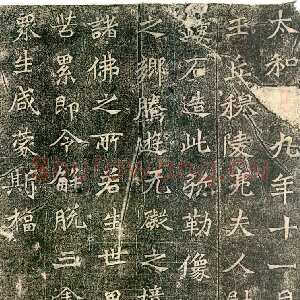 太和九年十一月
王丘穆陵亮夫人尉
石造此弥勒像
之鄉騰遊无礙之境
諸佛之所若生世界
苦累即令解脱三塗
眾生咸蒙斯福